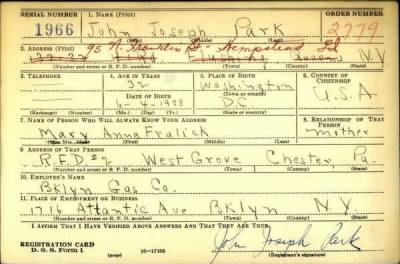 SERIAL NUMBER 1. NAME (Print) ORDER NUMBER
1966 John Joseph Park 2779
2. ADDRESS (Print) 95 N. Franklin St Hempstead
Flushing Queens N.Y.
(Number and street or R. F. D. number) (Town) (County) (State)
3. TELEPHONE 4. AGE IN YEARS 5. PLACE OF BIRTH 6. COUNTRY OF CITIZENSHIP
32 Washington
DATE OF BIRTH (Town or county) U.S.A
6-4-1908 D.C.
(Exchange) (Number) (Mo.) (Day) (Yr.) (State or country)
7. NAME OF PERSON WHO WILL ALWAYS KNOW YOUR ADDRESS 8. RELATIONSHIP OF THAT PERSON
Mary Anna Fralick Mother
9. ADDRESS OF THAT PERSON
R.F.D #2 West Grove Chester, Pa.
(Number and street or R. F. D. number) (Town) (County) (State)
10. EMPLOYER'S NAME
Bklyn Gas Co.
11. PLACE OF EMPLOYMENT OR BUSINESS
1716 Atlantic Ave Bklyn N.Y.
(Number and street or R. F. D. number) (Town) (County) (State)
I AFFIRM THAT I HAVE VERIFIED ABOVE ANSWERS AND THAT THEY ARE TRUE.
REGISTRATION CARD
D. S. S. Form 1 (over) 16-17105 John Joseph Park
(Registrant's signature)